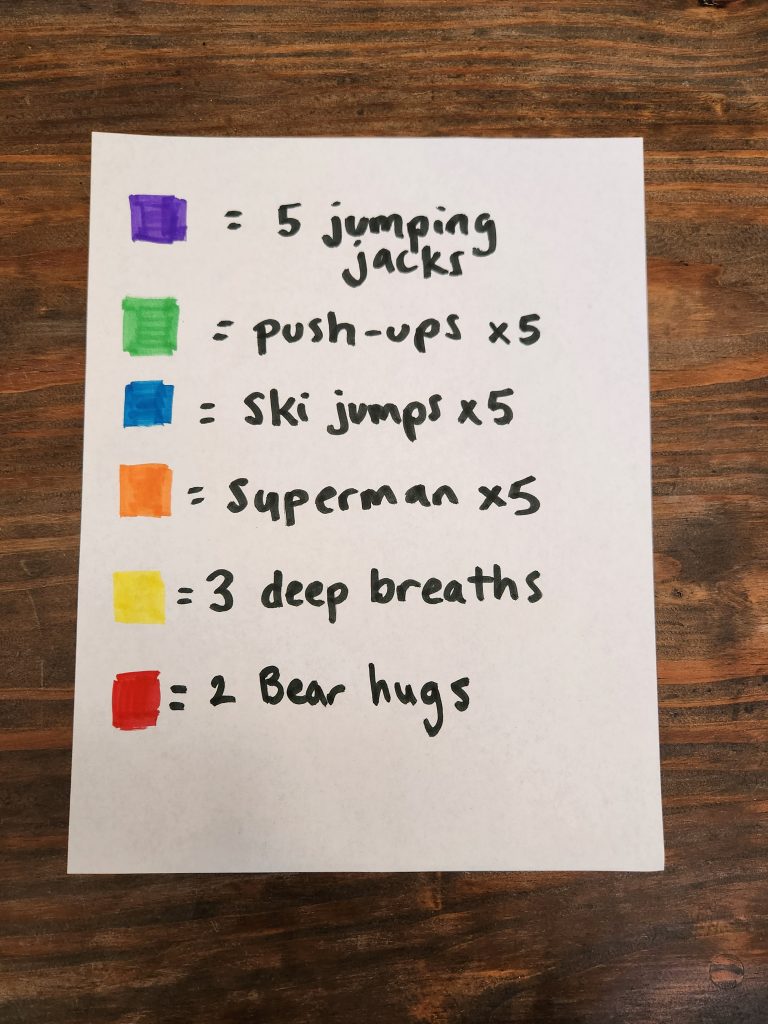 = 5 jumping
jacks
= push-ups x5
= Ski jumps x5
= Superman x5
= 3 deep breaths
= 2 Bear hugs